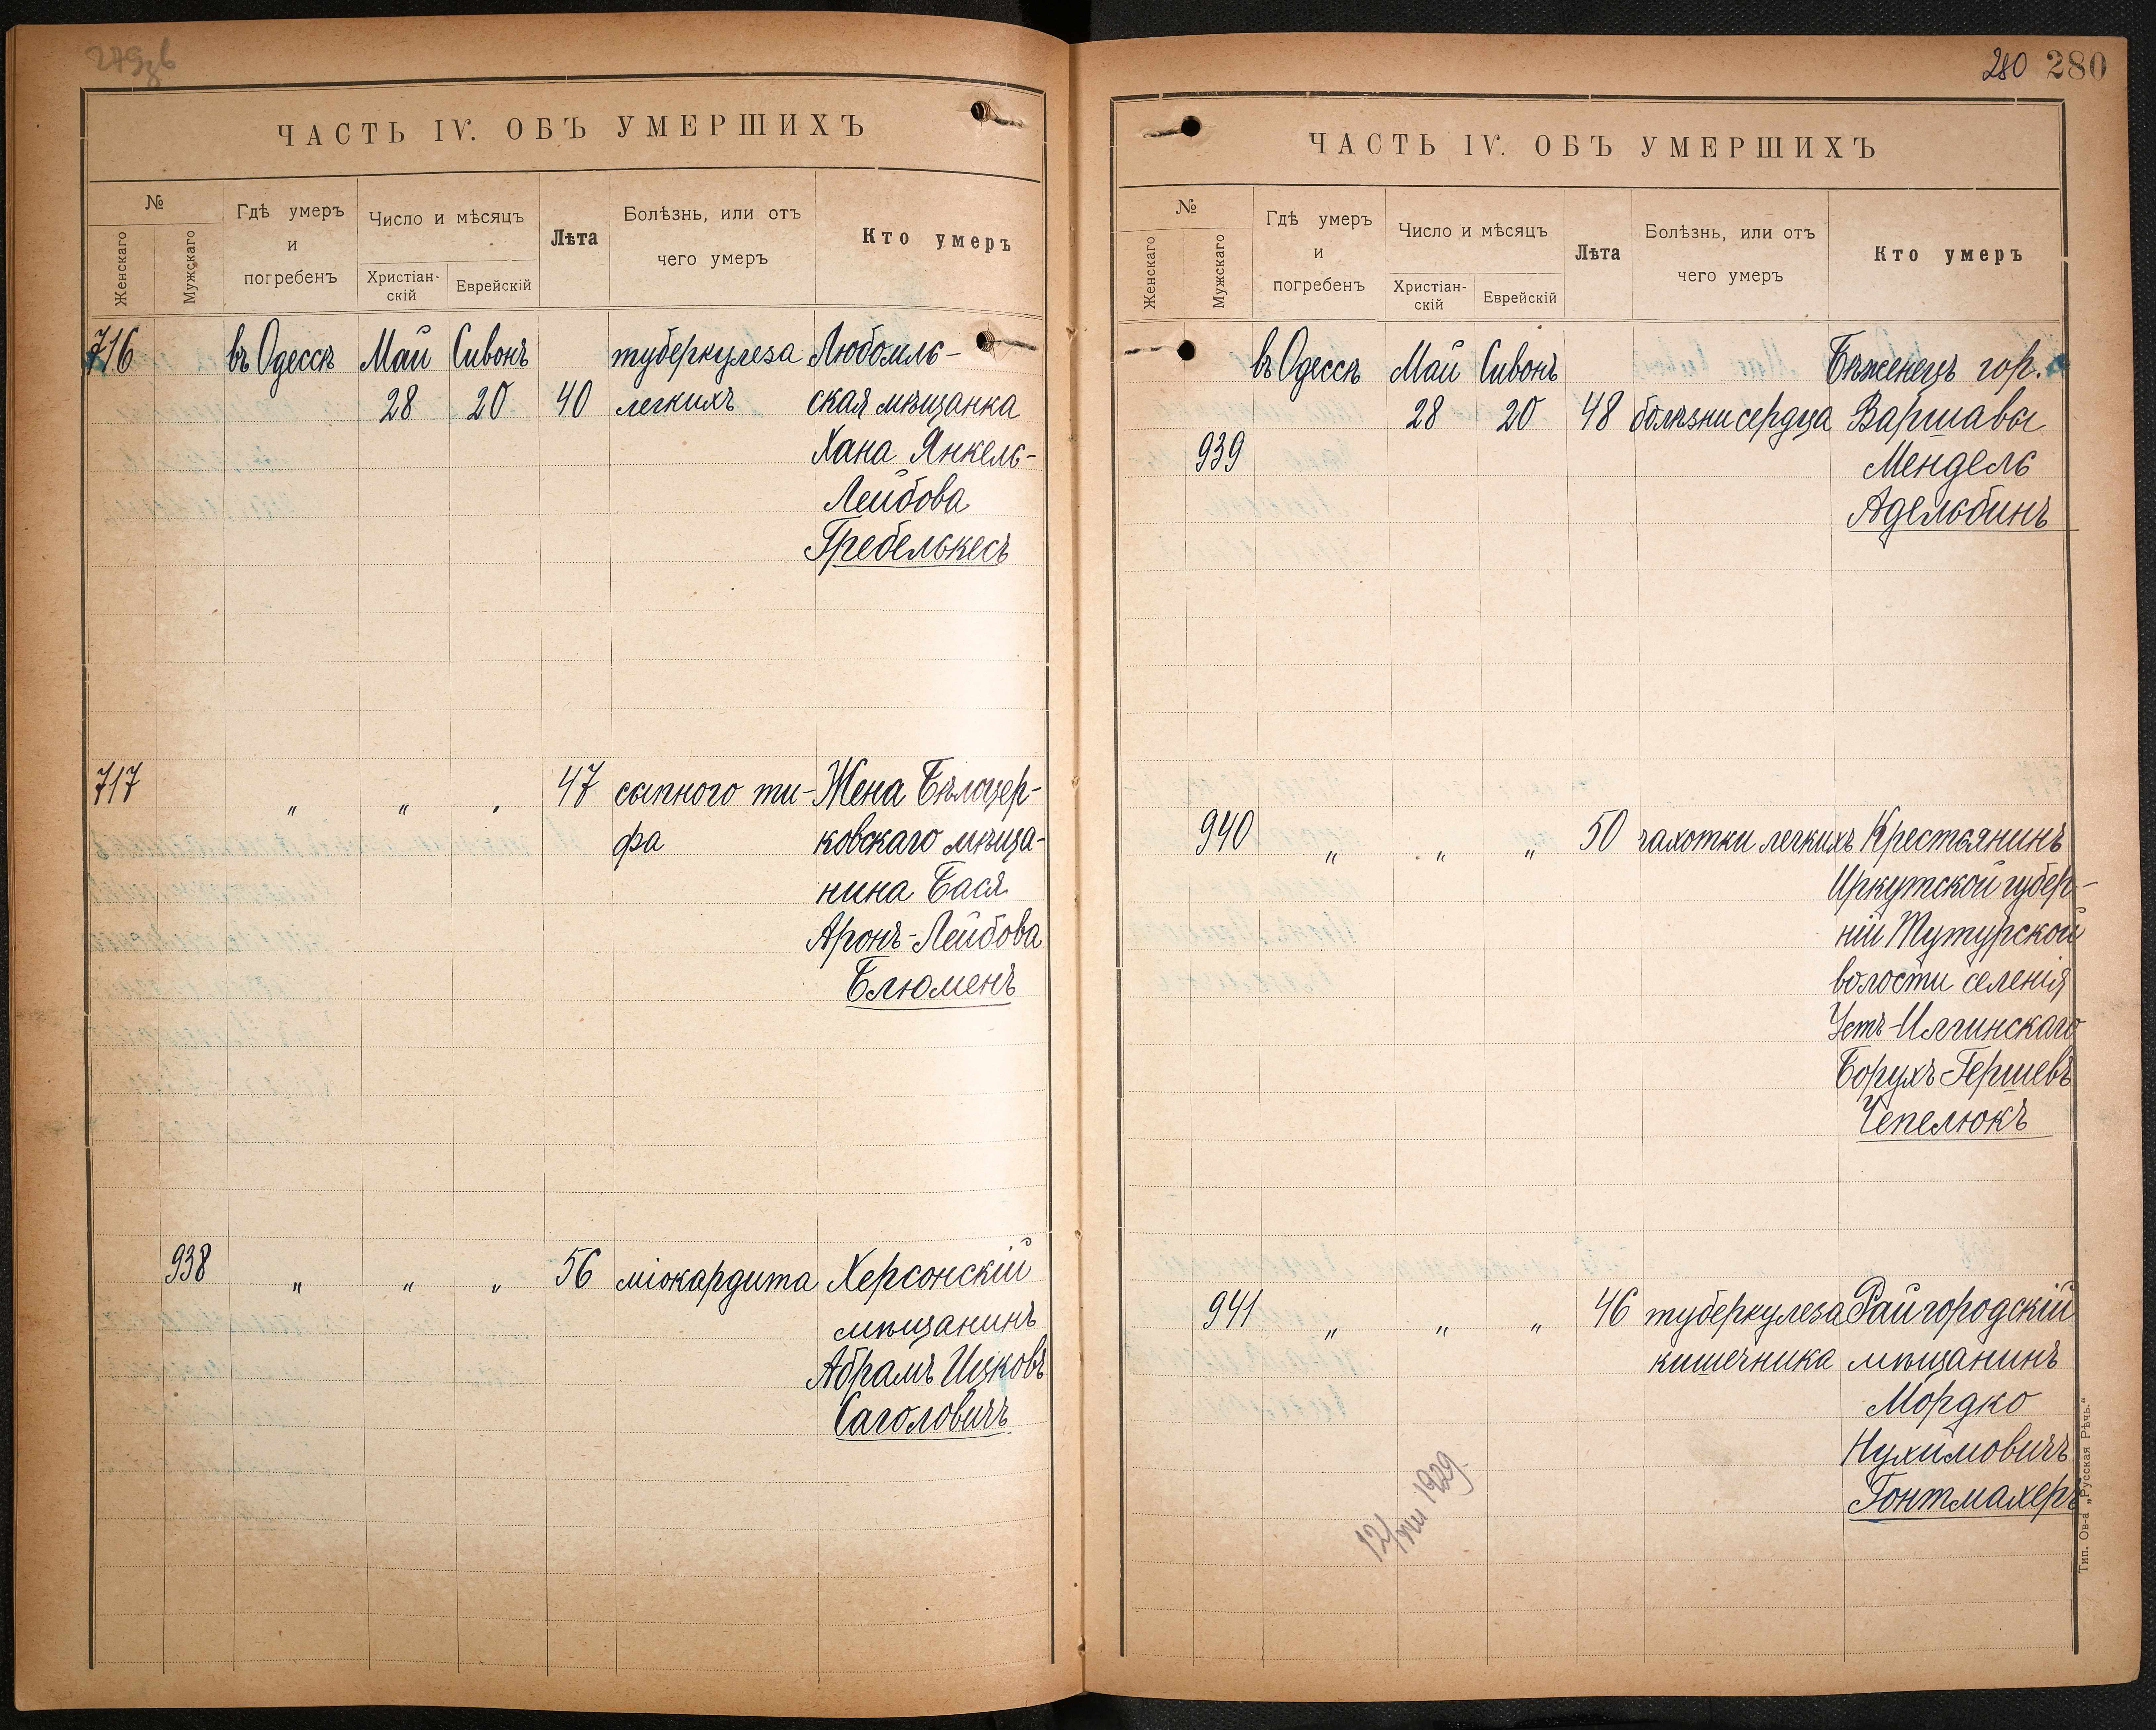 279зв
ЧАСТЬ IV. ОБЪ УМЕРШИХЪ
№
Женскаго
Мужскаго
Гдѣ умеръ
и
погребенъ
Число и мѣсяцъ
Христіан-
скій
Еврейскій
Лѣта
Болѣзнь, или отъ
чего умеръ
Кто умеръ
716 въ Одессѣ Май Сивонъ туберкулеза Любомль-
28 20 40 легкихъ ская мѣщанка
Хана Янкель-
Лейбова
Гребелькесъ
717 " " " 47 сыпного ти- Жена Бѣлоцер-
фа ковскаго мѣща-
нина Бася
Аронъ-Лейбова
Блюменъ
938 " " " 56 міокардита Херсонскій
мѣщанинъ
Абрамъ Ицковъ
Саголовичъ
280 280
ЧАСТЬ IV. ОБЪ УМЕРШИХЪ
№
Женскаго
Мужскаго
Гдѣ умеръ
и
погребенъ
Число и мѣсяцъ
Христіан-
скій
Еврейскій
Лѣта
Болѣзнь, или отъ
чего умеръ
Кто умеръ
въ Одессѣ Май Сивонъ Бѣженецъ гор.
28 20 48 болѣзни сердца Варшавы
939 Мендель
Адельбинъ
940 " " " 50 чахотки легкихъ Крестьянинъ
Иркутской губер-
ніи Тутурской
волости селенія
Устъ-Илгинскаго
Борухъ Гершевъ
Чепелюкъ
941 " " " 46 туберкулеза Райгородскій
кишечника мѣщанинъ
Мордко
Нухимовичъ
Гонтмахеръ
1929
Тип. Ов-а „Русская Рѣчь."